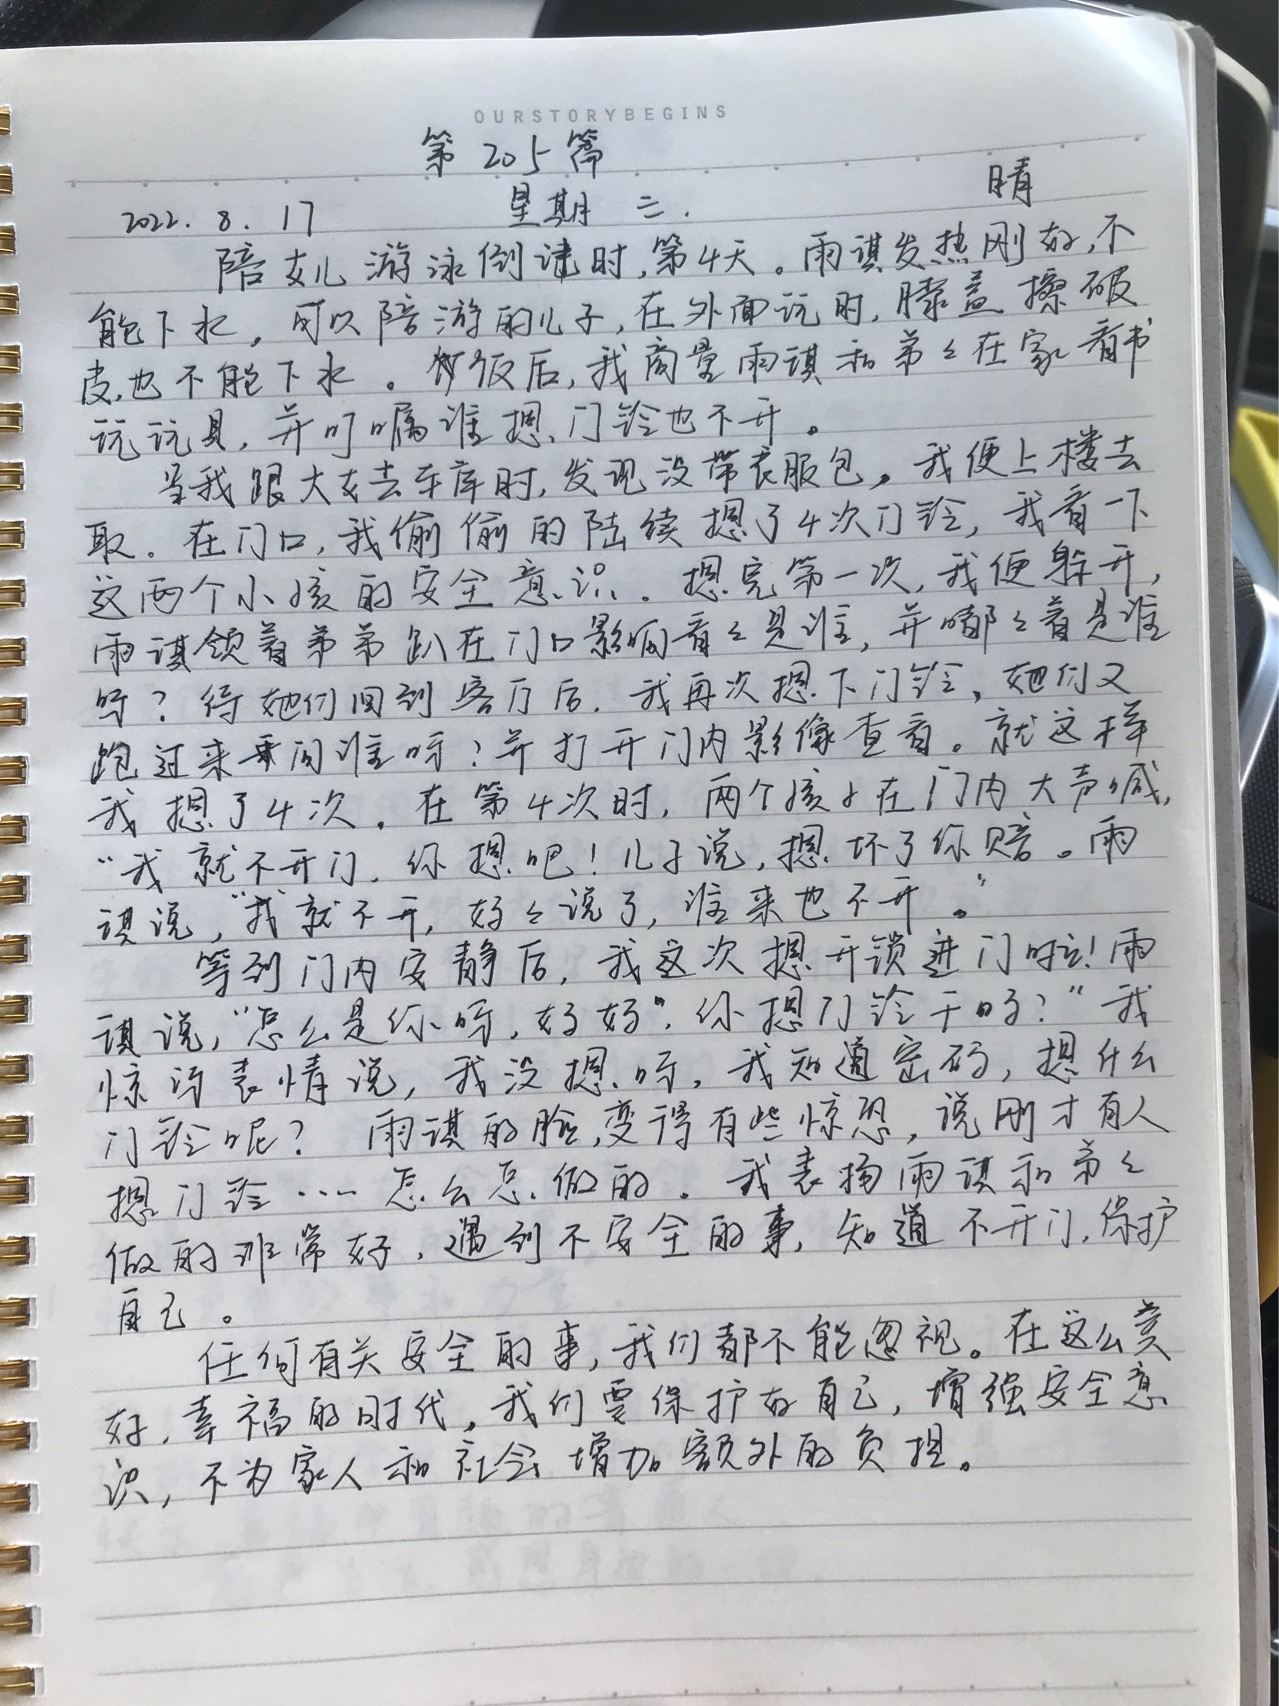 OURSTORYBEGINS
第205篇
2022.8.17 星期二. 晴
陪女儿游泳倒计时,第4天。雨谋发热刚好,不
能下水,可以陪游的儿子,在外面玩时,膝盖擦破
皮,也不能下水。饭后,我商量雨谋和弟弟在家看书
玩玩具,并叮嘱谁摁门铃也不开。
当我跟大女去车库时,发现没带衣服包,我便上楼去
取。在门口,我偷偷的陆续摁了4次门铃,我看一下
这两个小孩的安全意识。摁完第一次,我便躲开,
雨谋领着弟弟趴在门口影响看看是谁,并嘟嘟着是谁
呀?待她们回到客厅后,我再次摁下门铃,她们又
跑过来问谁呀?并打开门内影像查看。就这样
我摁了4次。在第4次时,两个孩子在门内大声喊,
“我就不开门,你摁吧!儿子说,摁坏了你赔。雨
谋说,“我就不开,好好说了,谁来也不开。”
等到门内安静后,我这次摁开锁进门啦!雨
谋说,“怎么是你呀,好好”,你摁门铃干吗?”我
惊讶表情说,我没摁呀,我知道密码,摁什么
门铃呢?雨谋的脸,变得有些惊恐,说刚才有人
摁门铃……怎么怎么做的。我表扬雨谋和弟弟
做的非常好,遇到不安全的事,知道不开门,保护
自己。
任何有关安全的事,我们都不能忽视。在这么美
好,幸福的时代,我们要保护好自己,增强安全意
识,不为家人和社会增加额外的负担。